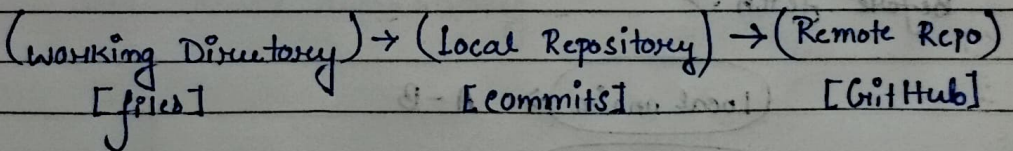 (Working Directory) → (Local Repository) → (Remote Repo)
[files] [commits] [GitHub]